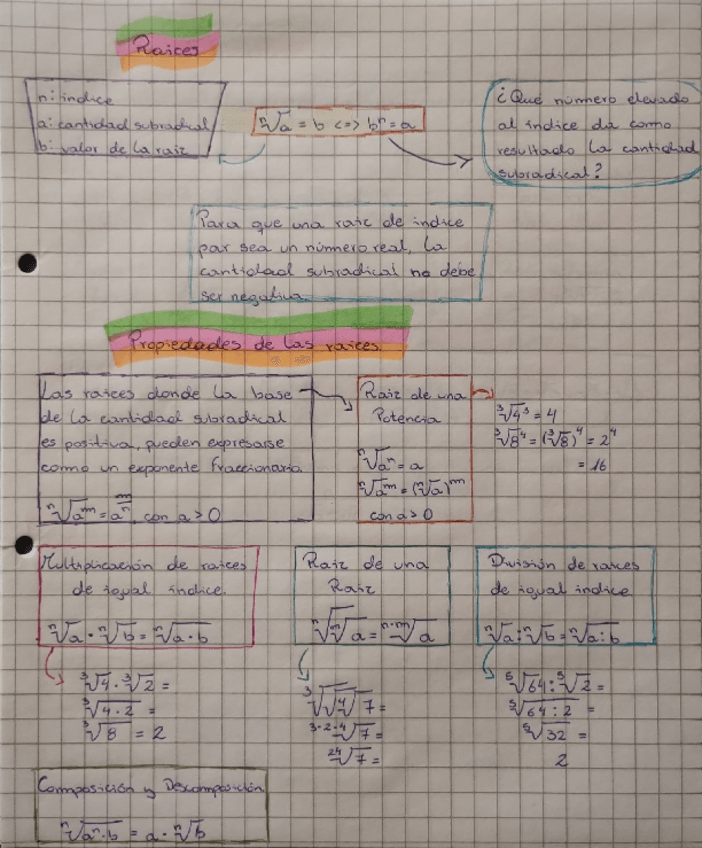 Raices
n: indice
a: cantidad subradical
b: valor de la raiz
ⁿ√a = b <=> bⁿ = a
¿Qué número elevado
al índice da como
resultado la cantidad
subradical?
Para que una raiz de indice
par sea un número real, la
cantidad subradical no debe
ser negativa
Propiedades de las raices
Las raices donde la base
de la cantidad subradical
es positiva, pueden expresarse
como un exponente fraccionario.
ⁿ√aᵐ = a^(m/n), con a > 0
Raiz de una
Potencia
ⁿ√aⁿ = a
ⁿ√aᵐ = (ⁿ√a)ᵐ
con a > 0
³√4³ = 4
³√8⁴ = (³√8)⁴ = 2⁴
= 16
Multiplicación de raices
de igual índice.
ⁿ√a · ⁿ√b = ⁿ√a · b
³√4 · ³√2 =
³√4 · 2 =
³√8 = 2
Raiz de una
Raiz
ⁿ√ᵐ√a = ⁿ·ᵐ√a
³√√⁴√7 =
³·²·⁴√7 =
²⁴√7 =
División de raices
de igual indice
ⁿ√a : ⁿ√b = ⁿ√a : b
⁵√64 : ⁵√2 =
⁵√64 : 2 =
⁵√32 =
2
Composición y Descomposición
ⁿ√aⁿ · b = a · ⁿ√b